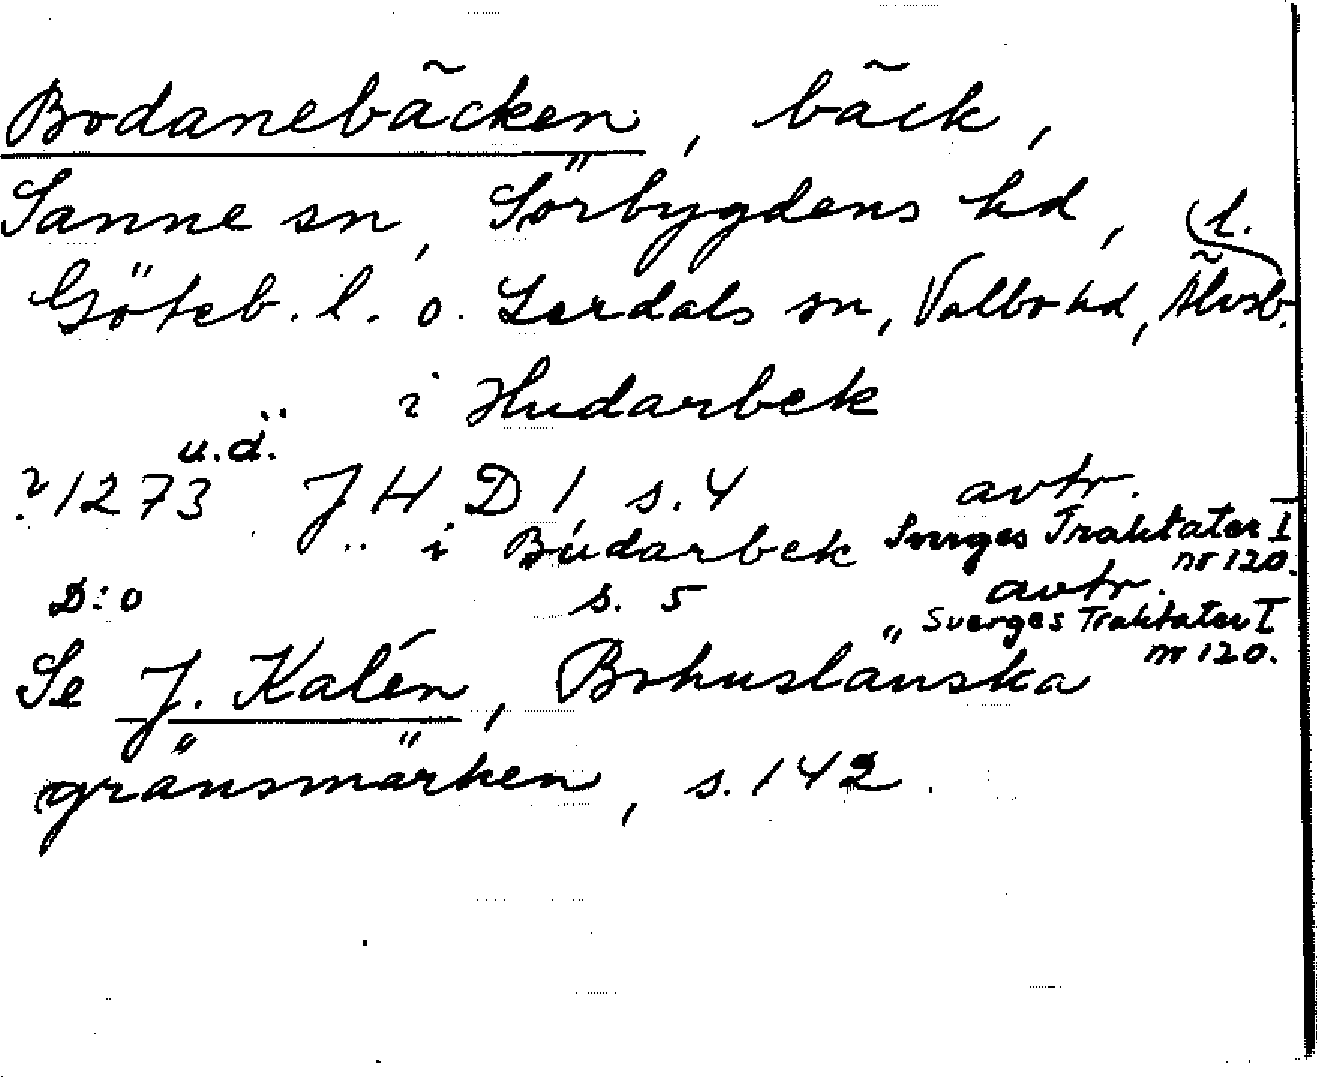 Bodanebäcken, bäck,
Sanne sn, Sörbygdens hd,
Göteb. l. o. Lerdals sn, Valbo hd, Älvsb. l.
i Hudarbek
u.d.
?1273 J H D 1, s. 4 avtr.
Sverges Traktater I
nr 120.
i Budarbek
D:o s. 5 avtr.
Sverges Traktater I
nr 120.
Se J. Kalén, Bohuslänska
gränsmärken, s. 142.